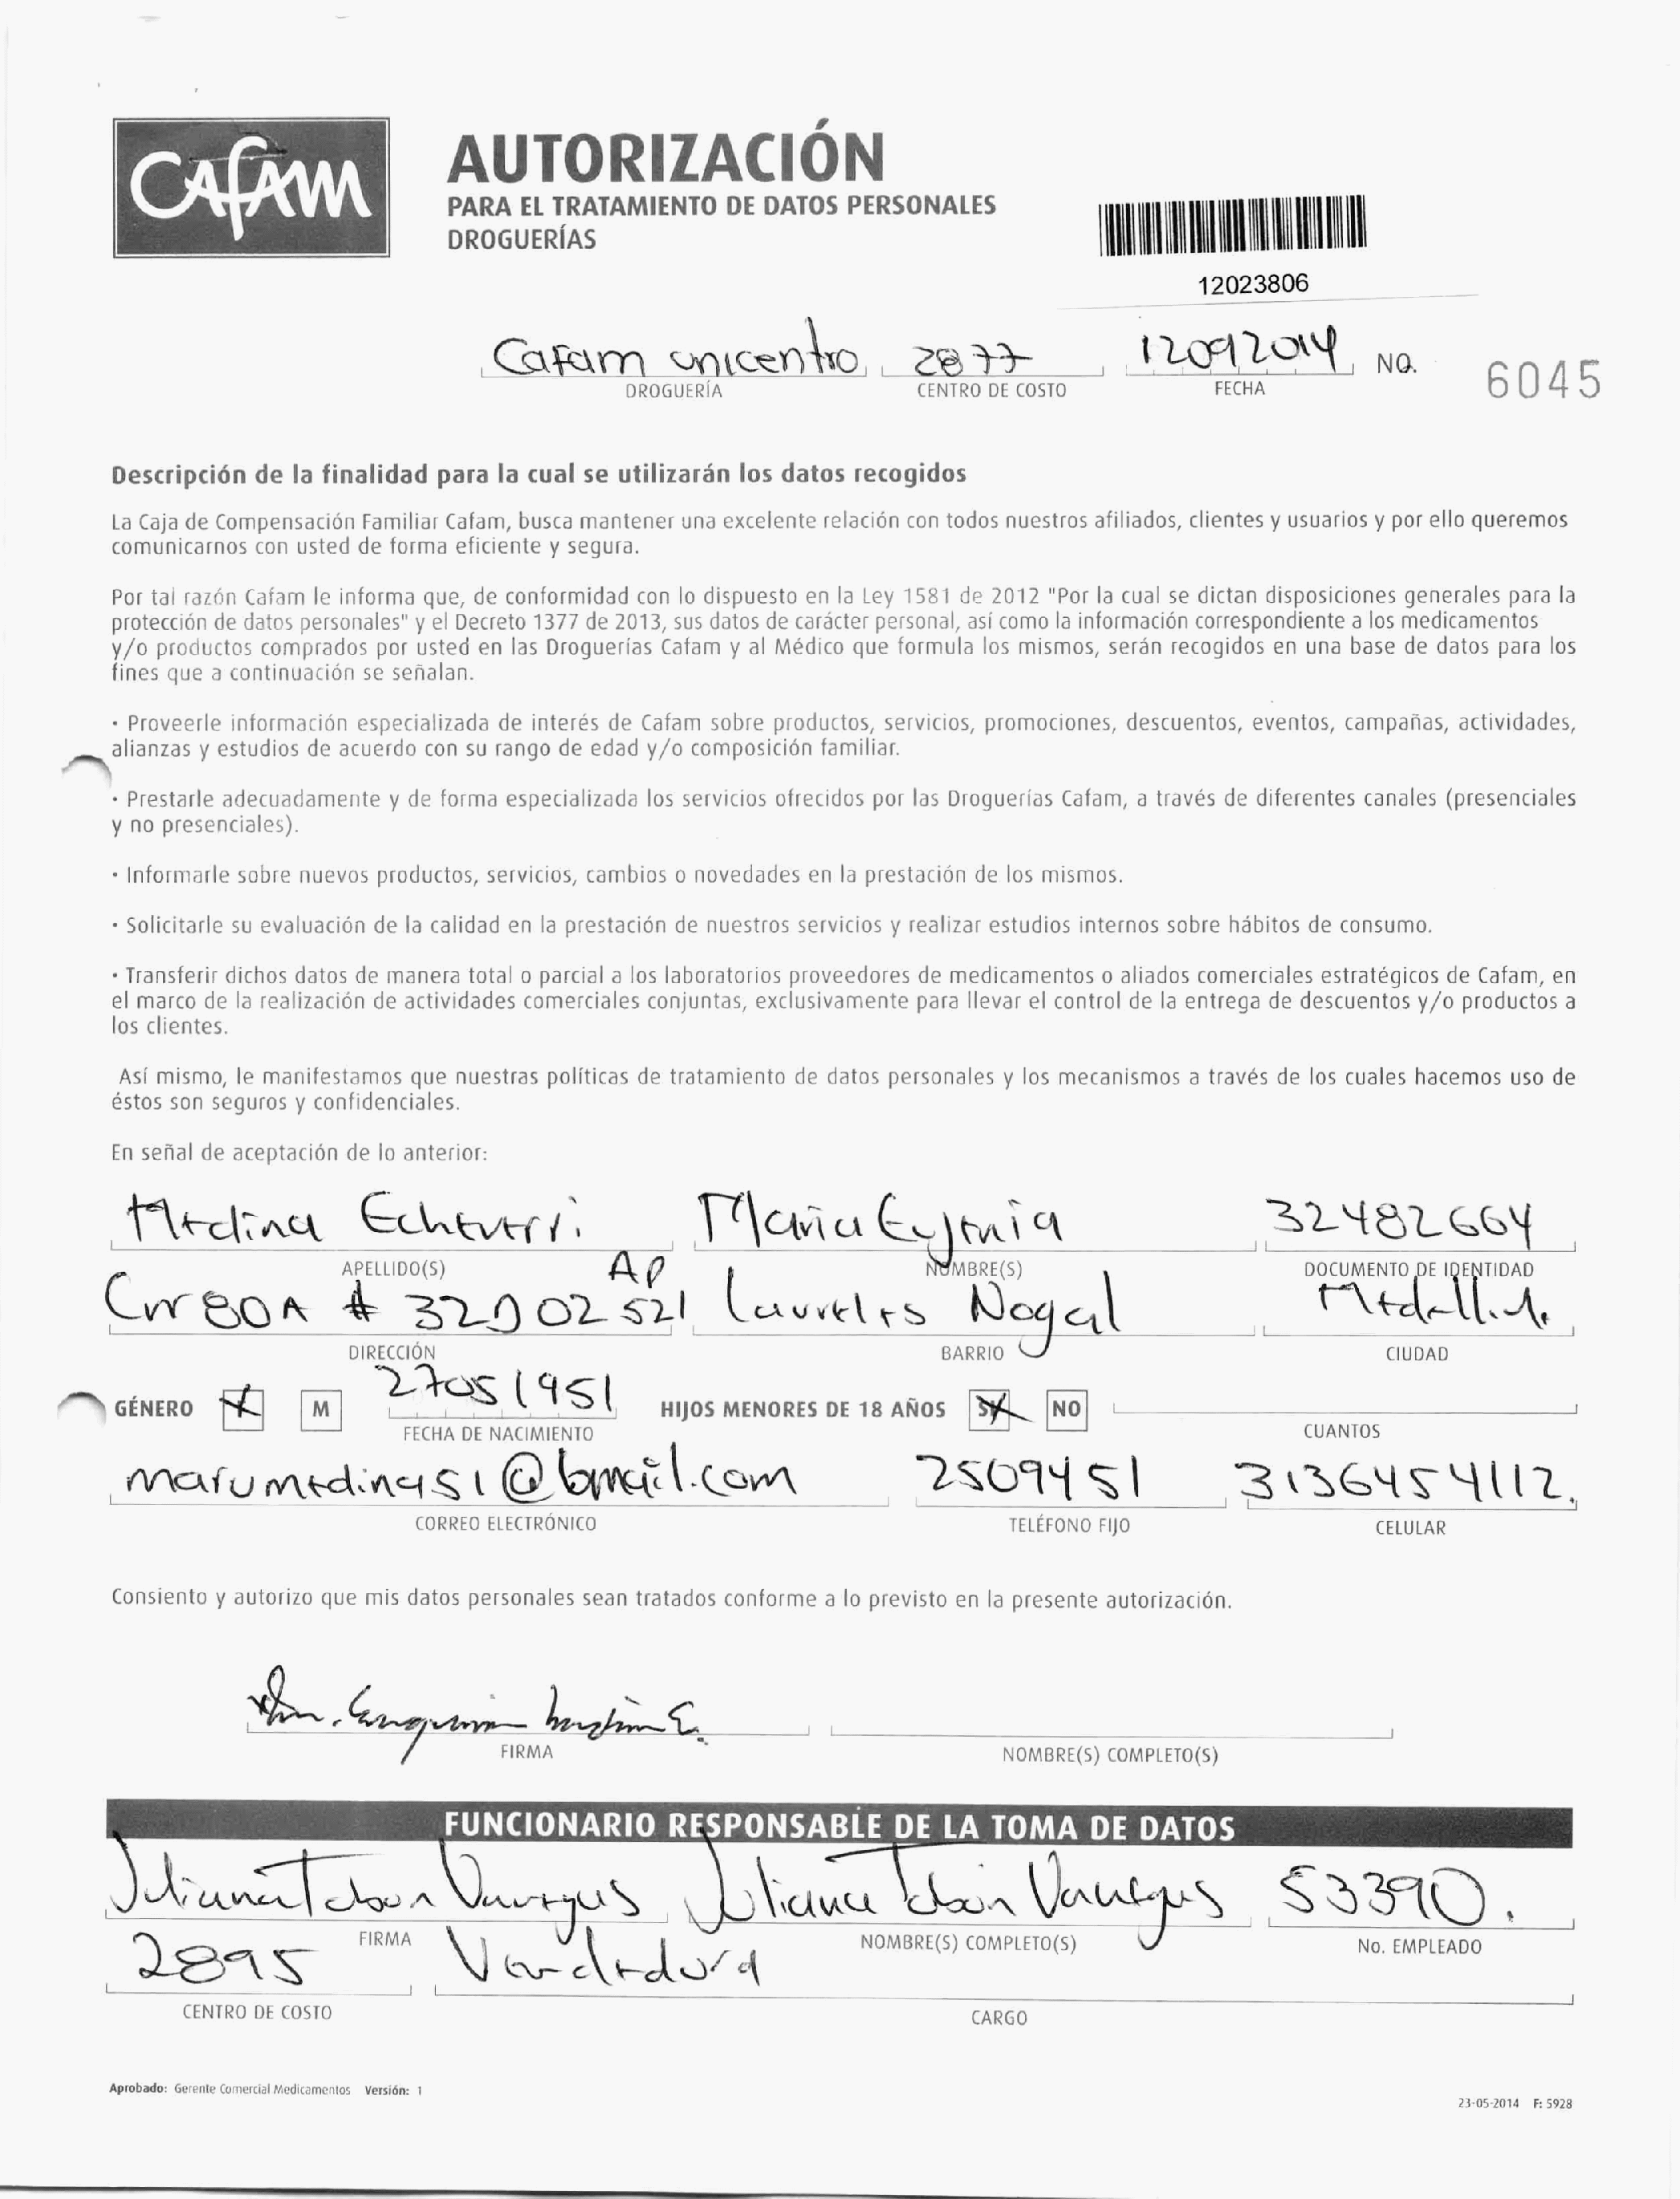 CAFAM
AUTORIZACIÓN
PARA EL TRATAMIENTO DE DATOS PERSONALES
DROGUERÍAS
12023806
Cafam unicentro 2877 12092014 NO. 6045
DROGUERÍA CENTRO DE COSTO FECHA
Descripción de la finalidad para la cual se utilizarán los datos recogidos
La Caja de Compensación Familiar Cafam, busca mantener una excelente relación con todos nuestros afiliados, clientes y usuarios y por ello queremos
comunicarnos con usted de forma eficiente y segura.
Por tal razón Cafam le informa que, de conformidad con lo dispuesto en la Ley 1581 de 2012 "Por la cual se dictan disposiciones generales para la
protección de datos personales" y el Decreto 1377 de 2013, sus datos de carácter personal, así como la información correspondiente a los medicamentos
y/o productos comprados por usted en las Droguerías Cafam y al Médico que formula los mismos, serán recogidos en una base de datos para los
fines que a continuación se señalan.
· Proveerle información especializada de interés de Cafam sobre productos, servicios, promociones, descuentos, eventos, campañas, actividades,
alianzas y estudios de acuerdo con su rango de edad y/o composición familiar.
· Prestarle adecuadamente y de forma especializada los servicios ofrecidos por las Droguerías Cafam, a través de diferentes canales (presenciales
y no presenciales).
· Informarle sobre nuevos productos, servicios, cambios o novedades en la prestación de los mismos.
· Solicitarle su evaluación de la calidad en la prestación de nuestros servicios y realizar estudios internos sobre hábitos de consumo.
· Transferir dichos datos de manera total o parcial a los laboratorios proveedores de medicamentos o aliados comerciales estratégicos de Cafam, en
el marco de la realización de actividades comerciales conjuntas, exclusivamente para llevar el control de la entrega de descuentos y/o productos a
los clientes.
Así mismo, le manifestamos que nuestras políticas de tratamiento de datos personales y los mecanismos a través de los cuales hacemos uso de
éstos son seguros y confidenciales.
En señal de aceptación de lo anterior:
Medina Echeverri Maria Eugenia 32482664
APELLIDO(S) NOMBRE(S) DOCUMENTO DE IDENTIDAD
Crr 80A # 32 02 AP 521 Laureles Nogal Medellin.
DIRECCIÓN BARRIO CIUDAD
GÉNERO M 27051951 HIJOS MENORES DE 18 AÑOS SI NO
FECHA DE NACIMIENTO CUANTOS
marumedina51@bmail.com 2509451 3136454112.
CORREO ELECTRÓNICO TELÉFONO FIJO CELULAR
Consiento y autorizo que mis datos personales sean tratados conforme a lo previsto en la presente autorización.
FIRMA NOMBRE(S) COMPLETO(S)
FUNCIONARIO RESPONSABLE DE LA TOMA DE DATOS
Juliana Tobon Vanegas Juliana Tobon Vanegas 53390.
FIRMA NOMBRE(S) COMPLETO(S) No. EMPLEADO
2895 Vendedora
CENTRO DE COSTO CARGO
Aprobado: Gerente Comercial Medicamentos Versión: 1
23-05-2014 F: 5928